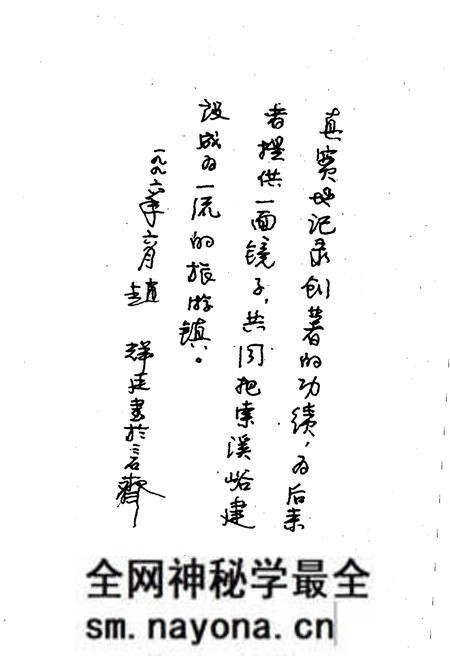 真实地记录创著的功绩，为后来
者提供一面镜子，共同把索溪峪建
设成为一流的旅游镇。
一九九六年六月 赵
书于三石斋
全网神秘学最全
sm.nayona.cn